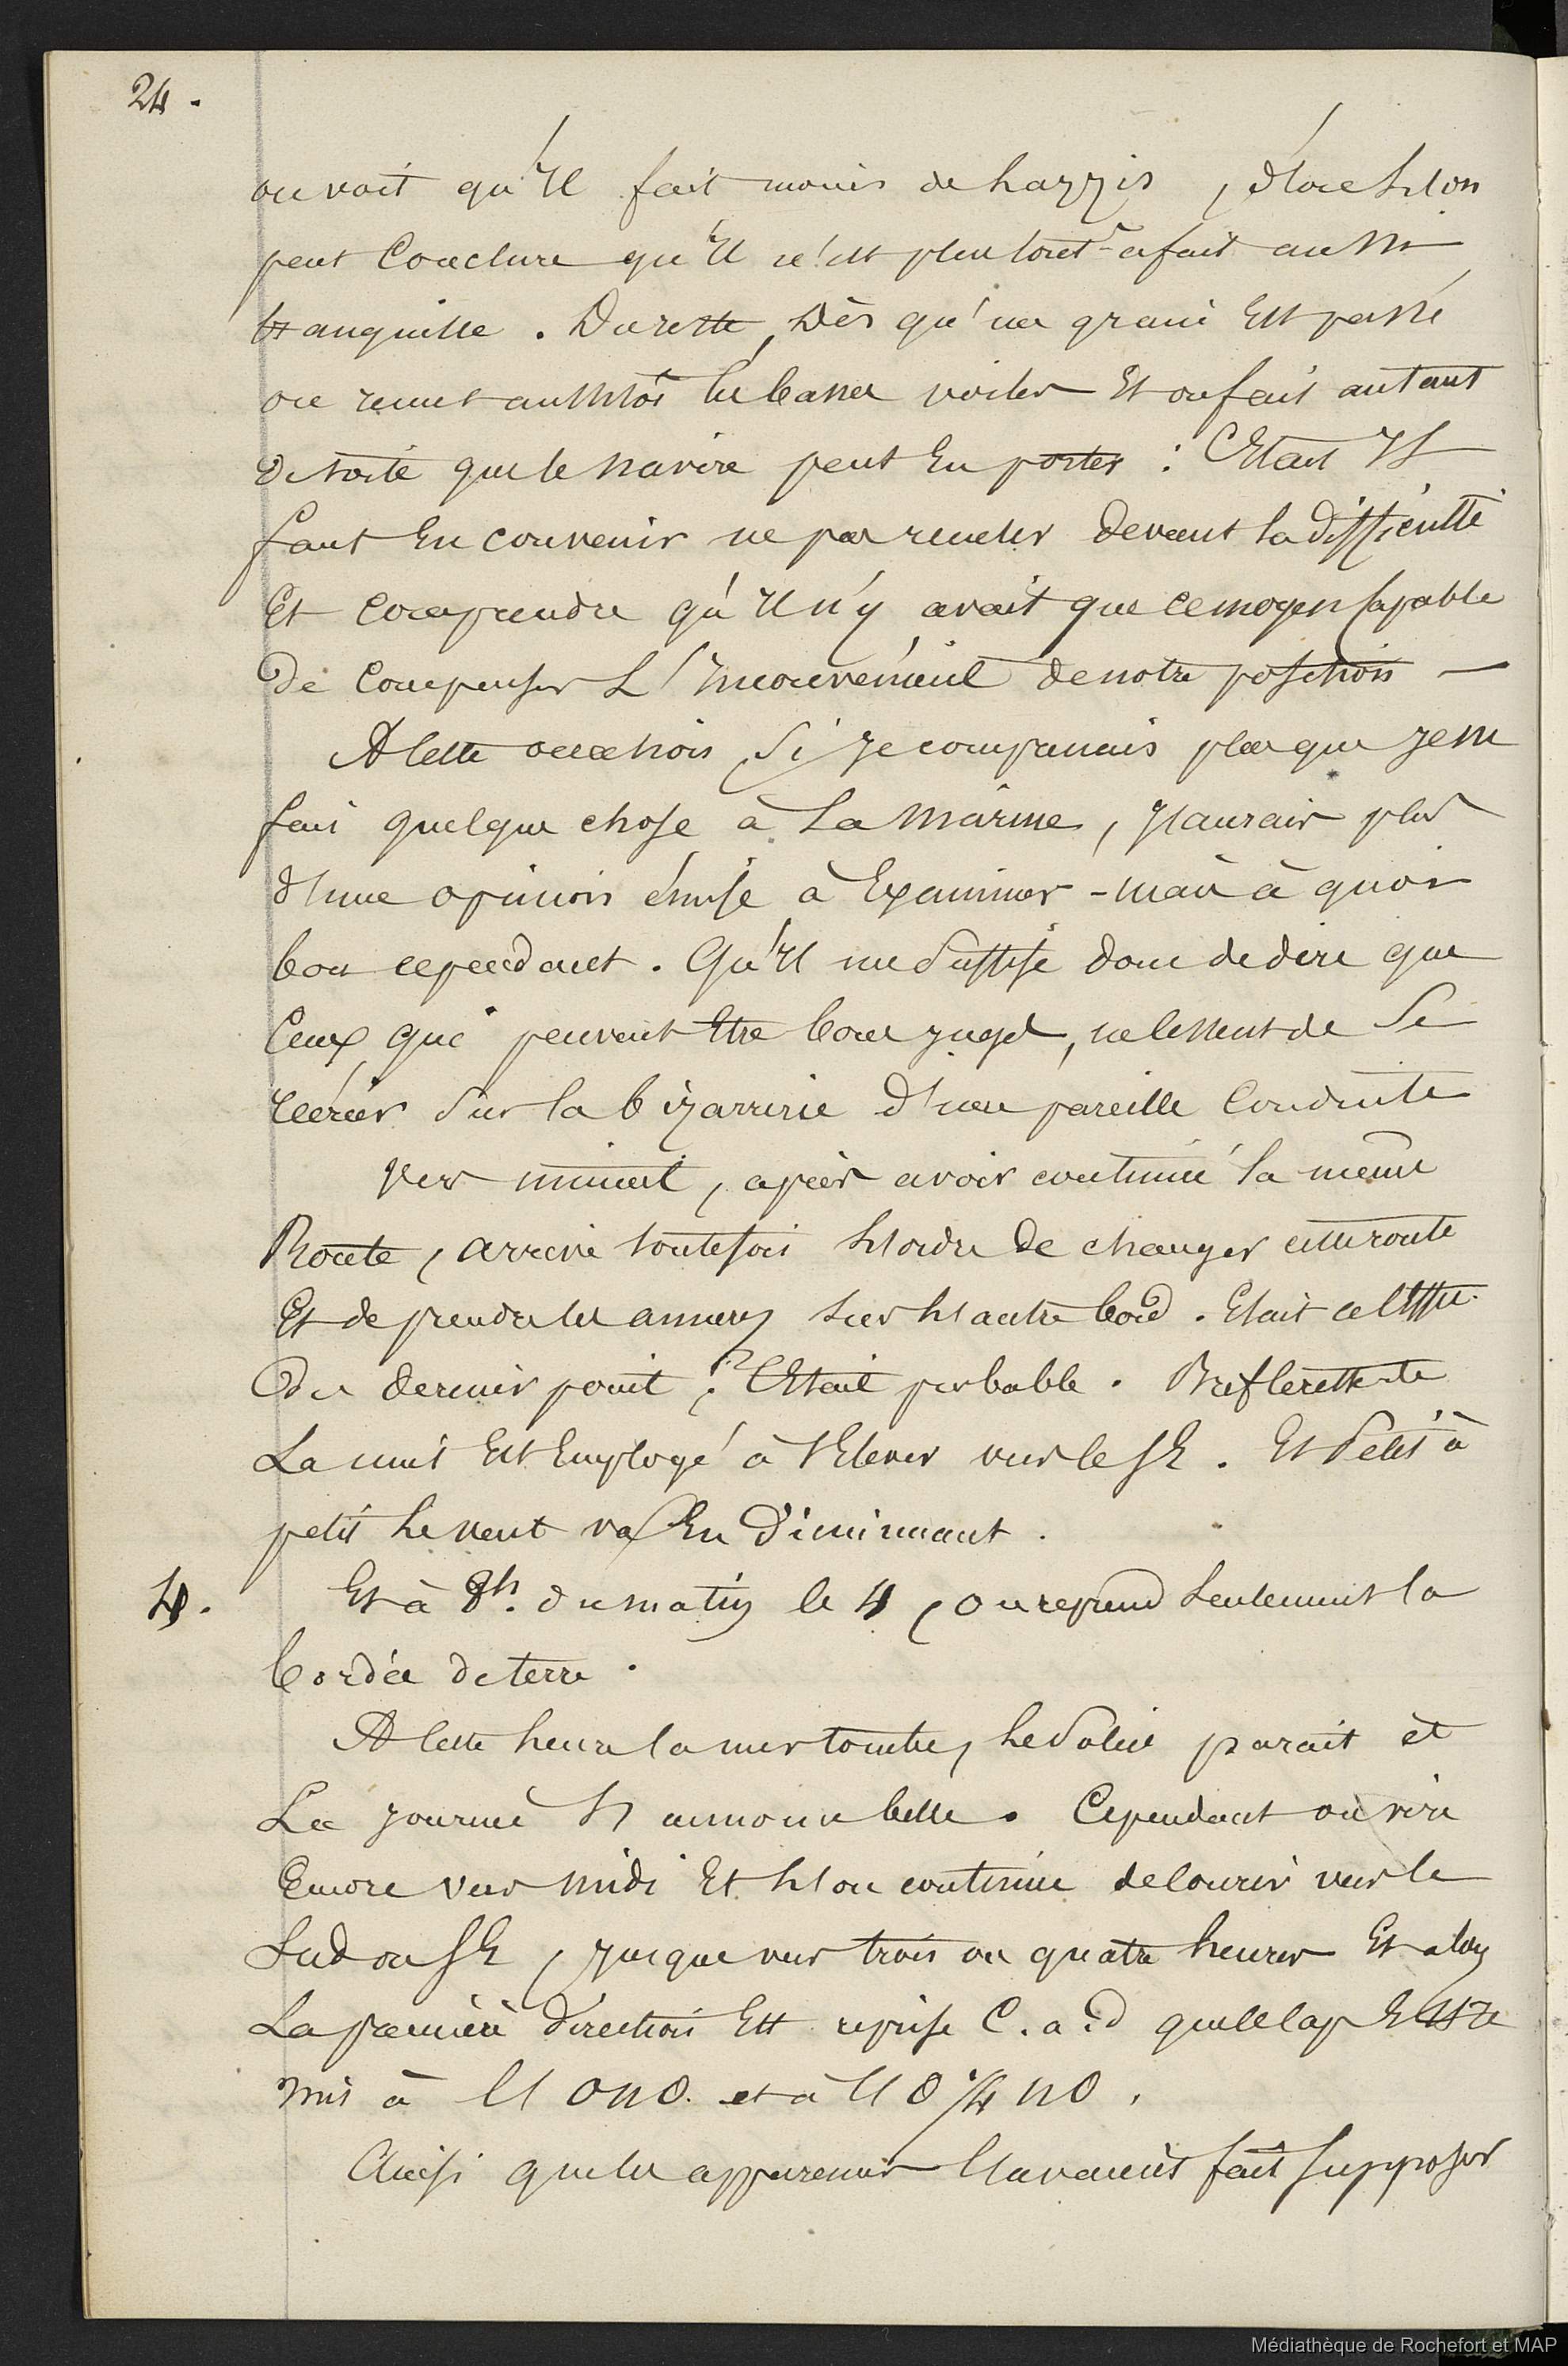 24.
on voit qu'Il fait moins de lazzis, d'où l'on
peut Conclure qu'Il n'est plus tout-à fait aussi
tranquille. Du reste, Dès qu'un grain Est passé
on remet aussitôt les basses voiles Et on fait autant
de toile que le navire peut En porter : C'Etait Il
faut En convenir ne pas reculer devant la difficulté
Et comprendre qu'Il n'y avait que ce moyen capable
De Compenser L'Inconvénient de notre position —
A cette occasion, Si Je comprenais plus que Je ne
fais quelque chose à La Marine, Il aurait plus
d'une opinion émise à Examiner - mais à quoi
bon cependant. Qu'Il me Suffise donc de dire que
Ceux, qui peuvent Etre bons juges, ne cessent de Se
récrier Sur la bizarrerie d'une pareille Conduite
Vers minuit, après avoir continué la même
Route, arrive toutefois L'ordre de changer cette route
Et de prendre les amures Sur L'autre bord. Etait ce l'Effet
Du dernier point ? C'Etait probable. Bref le reste de
La nuit Est Employé à s'Elever vers le SE. Et Petit à
petit Le vent va En Diminuant.
4. Et à 8h. du matin le 4, on reprend Seulement la
bordée de terre.
A cette heure la mer tombe, Le Soleil parait et
La journée S'annonce belle. Cependant on vire
Encore vers midi Et L'on continue de courir vers le
Sud ou SE, Jusque vers trois ou quatre heures Et alors
La première direction Est reprise C. a. d que le cap Est
mis à l'ONO. et à l'O 1/4 NO.
Ainsi que les apparences l'avaient fait Supposer
Médiathèque de Rochefort et MAP